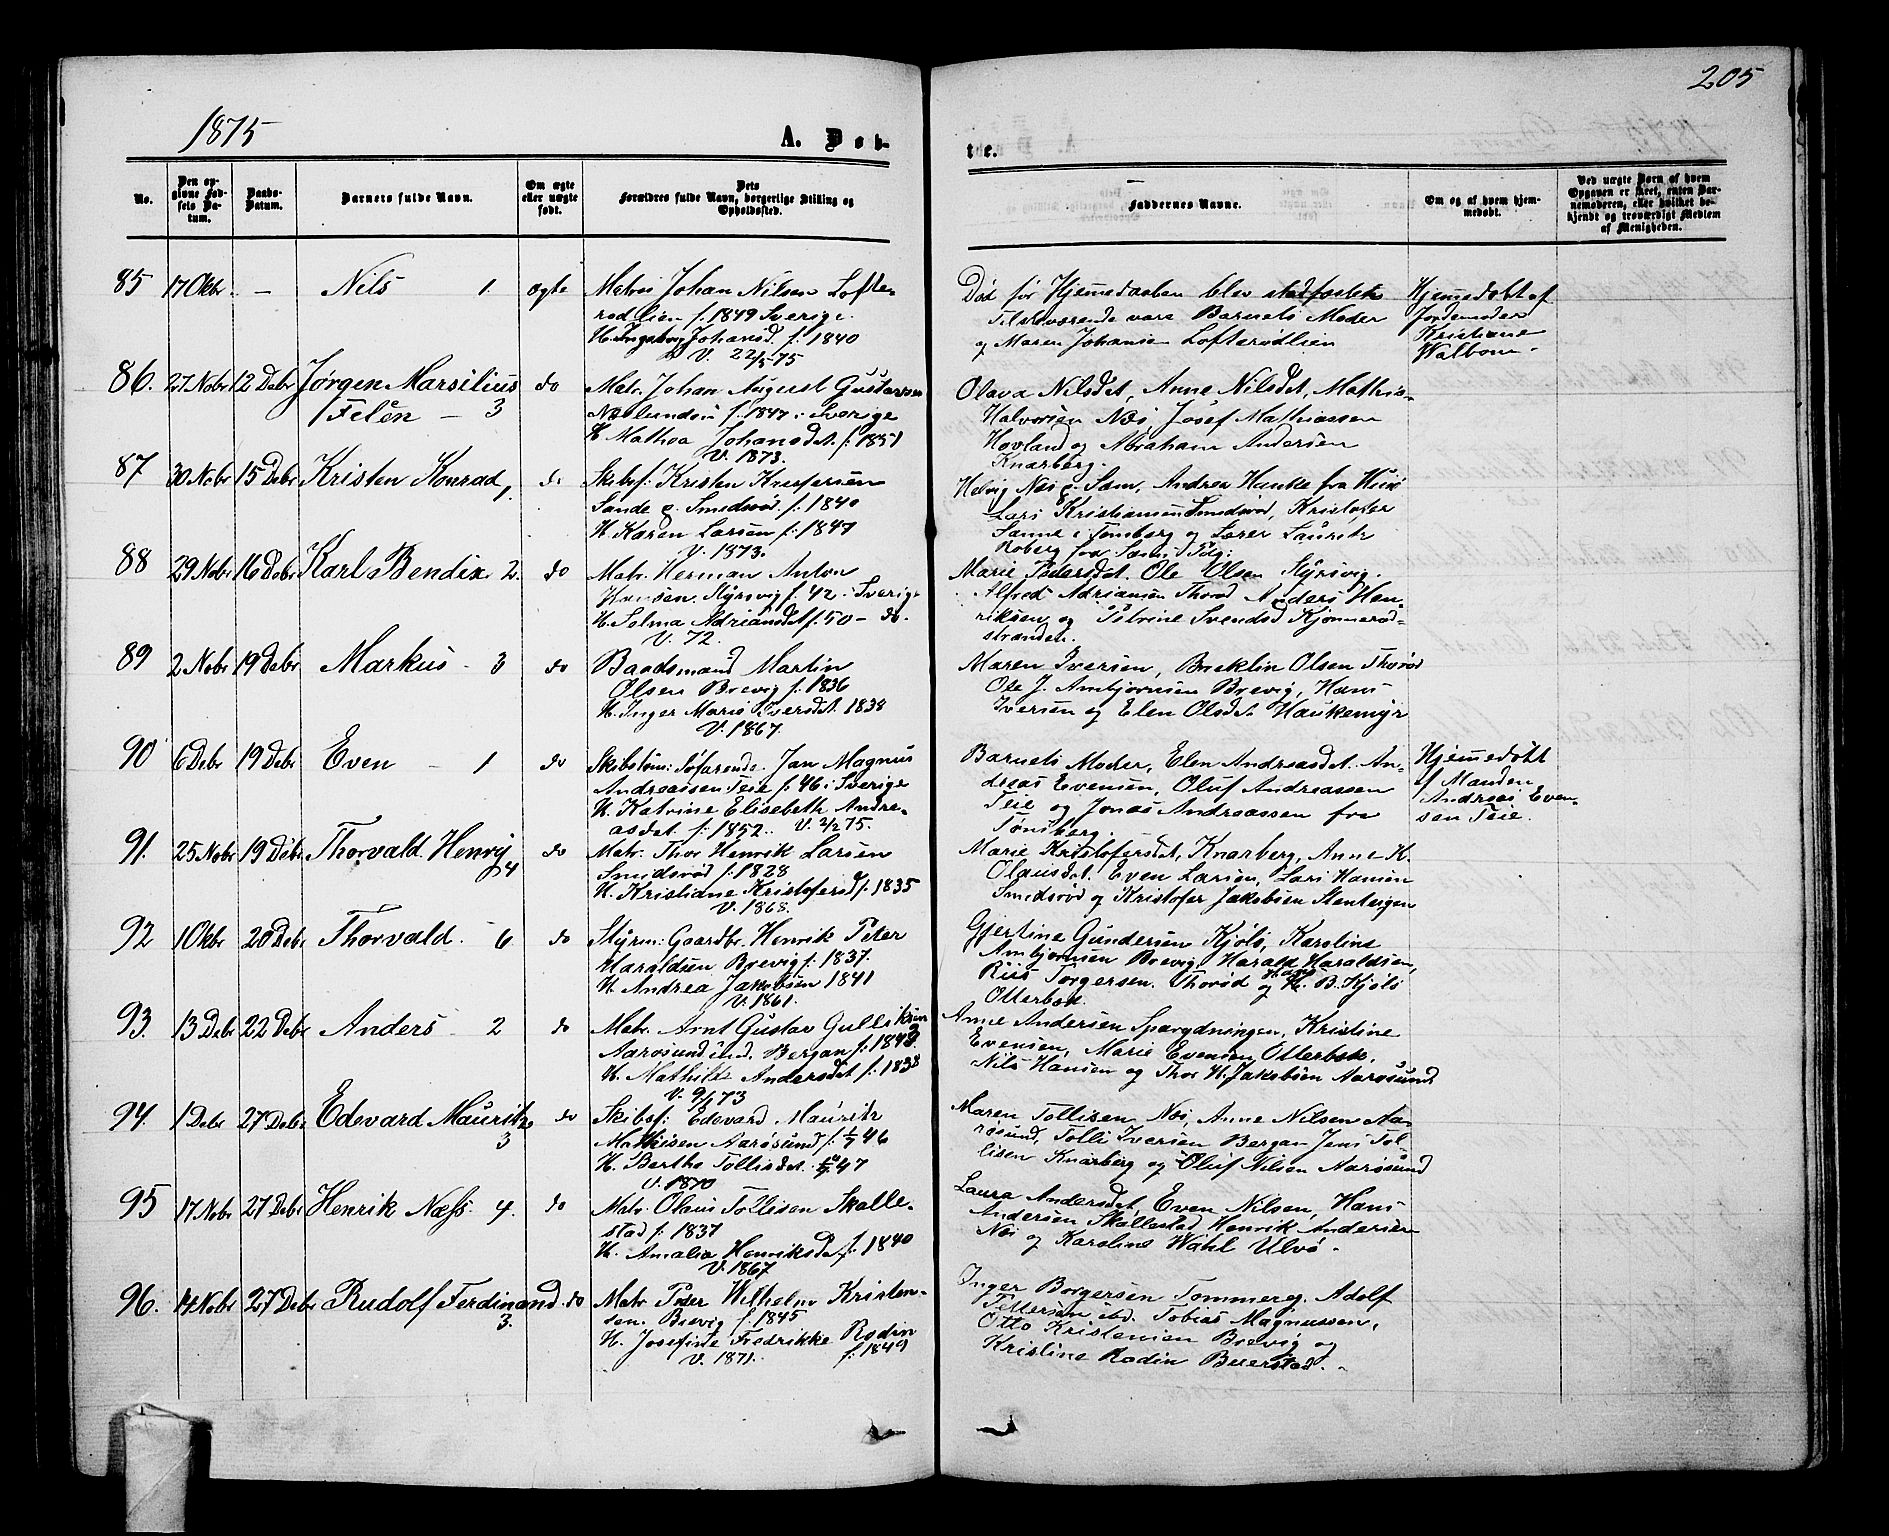 205
1875
A. Døb-
te.
No.
Den op-
givne Fød-
sels Da-
tum.
Daabs-
Datum.
Barnets fulde Navn.
Om ægte
eller uægte
født.
Dets
Forældres fulde Navn, borgerlige Stilling og
Opholdssted.
Faddernes Navne.
Om og af hvem hjem-
medøbt.
Ved uægte Børn af hvem
Opgaven er skeet, enten Bar-
nemoderen, eller hvilket be-
kjendt og troværdigt Medlem
af Menigheden.
85 17 Oktbr. — Nils 1 ægte
Matros Johan Nilsen Lofte-
rødlien f. 1849 Sverige.
H. Ingeborg Johansd. f. 1840
V. 22/5 75
Død før Hjemedaaben blev stadfæstet
Tilstedværende vare Barnets Moder
og Maren Johansen Lofterødlien
Hjemmedøbt af
Jordemoder
Kristiane
Walbom.
86. 27 Nobr 12 Debr Jørgen Marsilius
Felén — 3 do
Matr. Johan August Gustavsen
f. 1847 i Sverige
H. Mathea Johansdet. f. 1851
V. 1873.
Olava Nilsdet, Anne Nilsdet, Mathis
Halvorsen Næs, Josef Mathiassen
Hovland og Abraham Andersen
Knarberg.
87 30 Nobr 15 Debr Kristen Konrad 1. do
Skibsf: Kristen Kristofersen
Sande g. Smidsrød f. 1840
H. Karen Larsen f. 1847
V. 1873.
Helvig Næs g. Sem, Andrea Hanke fra Hus
Lars Kristiansen Smidsrød, Kristofer
Sanne i Tønsberg og Lærer Laurits
Roberg fra Sems Pdg:
88 29 Nobr 16 Debr Karl Bendix 2. do
Matr. Herman Anton
Hansen Styrsvig f. 42 - Sverige
H. Selma Adriansdet f. 50 - do.
V. 72.
Marie Pedersdet. Ole Olsen Styrsvig.
Alfred Adriansen Thorød Anders Hen-
riksen og Petrine Svendsd Kjønnerød-
stranden.
89 2 Nobr 19 Debr Markus - 3 do
Baadsmand Martin
Olsen Brevig f. 1836
H. Inger Marie Iversdet. 1838
V. 1867.
Maren Iversen, Olsen Thorød
Ole J. Ambjørnsen Brevig, Hans
Iversen og Elen Olsdet. Haukemyr
90 6 Debr 19 Debr Even - 1 do
Skibstøm: Søfarende. Jan Magnus
Andreassen Teie f. 46 i Sverige
H. Katrine Elisebeth Andre-
asdet. f. 1852. V. 2/2 75.
Barnets Moder, Elen Andreasdet. An-
dreas Evensen, Oluf Andreassen
Teie og Jonas Andreassen fra
Tønsberg.
Hjemmedøbt
af Manden
Andreas Even-
sen Teie.
91. 25 Nobr 19 Debr Thorvald Henrij 4 do
Matr. Thor Henrik Larsen
Smidsrød f. 1828
H. Kristiane Kristofersd f. 1835
V. 1868.
Marie Kristofersdet, Knarberg, Anne K.
Olausdet. Even Larsen, Lars Hansen
Smidsrød og Kristofer Jakobsen Stenbergen
92 1 Okbr 20 Debr Thorvald. - 6 do
Styrm: Gaardbr. Henrik Peter
Haraldsen Brevig f. 1837.
H. Andrea Jakobsen 1841
V. 1861.
Gjertine Gundersen Kjølø, Karoline
Ambjørnsen Brevig, Harald Haraldsen,
Riis Torgersen. Thorød og H. B. Kjølø
Otterbek.
93. 13 Debr 22 Debr Anders - 2 do
Matr. Arnt Gustav Gulliksen
Aarøsund und. Bergan f. 1848.
H. Mathilde Andersdet f. 1838
V. 9/1 73
Anne Andersen Kristine
Evensen, Marie Evensen Otterbek.
Nils Hansen og Thor H. Jakobsen Aarøsund
94. 1 Debr 27 Debr Edevard Mauritz 3 do
Skibsf: Edevard Mauritz
Mathisen Aarøsund f. 1/7 46
H. Berthe Tollisdet. 47
V. 1870
Maren Tollisen Næs, Anne Nilsen Aa-
røsund, Tolli Iversen Bergan Jens Tol-
lisen Knarberg og Oluf Nilsen Aarøsund
95 17 Nobr 27 Debr Henrik Næss. 4. do
Matr. Olaus Tollisen Skalle-
stad f. 1837
H. Amalia Henriksdet f. 1840
V. 1867
Laura Andersdet, Even Nilsen, Hans
Andersen Skallestad Henrik Andersen
Næs og Karoline Wahl Ulvø.
96. 14 Nobr 27 Debr Rudolf Ferdinand 3. do
Matr. Peder Wilhelm Kristen-
sen. Brevig f. 1845
H. Josefine Fredrikke Rodin
V. 1871. f. 1849
Inger Borgersen Tommereg. Adolf
Pettersen ibd. Tobias Magnussen,
Otto Kristensen Brevig og
Kristine Rodin Beierstad.